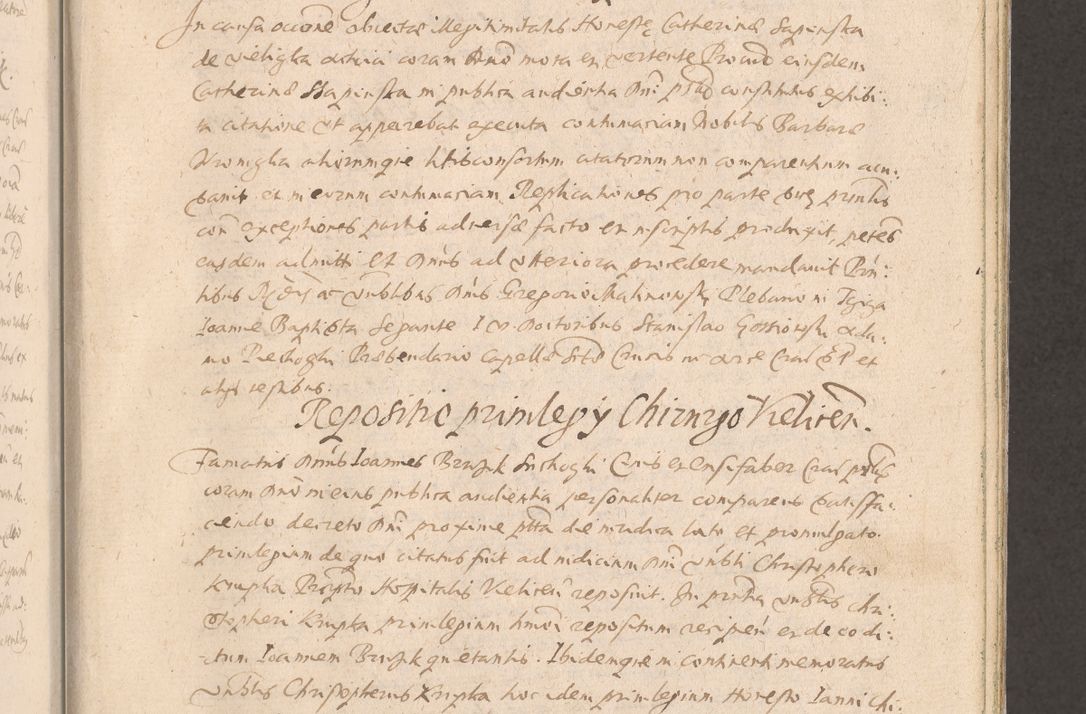 In causa occone obiectae illegitimitatis Honestę Catherinae Sapinska
de vieligka actrici coram Dno mota et vertente Procurator eiusdem
Catherinae Sapinska in publica audientia Dni pntis constitutus exhibi:
ta citatione ut apparebat executa contumaciam Nobilis Barbarae
Wronigka aliorumque litis consortum citatorum non comparentium accu:
savit et in eorum contumaciam Replicationes pro parte suę principalis
con exceptiones partis adversae facto et in scriptis produxit, petens
easdem admitti et Dnus ad ulteriora procedere mandavit Prn:
tibus Rdis ac vnblibus Dnis Gregorio Malinowsky Plebano in Igiga
Ioanne Baptista Segante I V Doctoribus Stanislao Gostiowski Ada:
mo Piechoghi Praebendario Capellae Sctae Crucis in Arce Crac EP et
alijs testibus.
Repositio privilegÿ Chirurgo Vielicen.
Famatus Dnus Ioannes Bruzk Suchoghi Civis et ensifaber Crac
coram Dno in eius publica audientia personaliter comparens satisfa:
ciendo decreto Dni proxime ptta die iuridica lato et promulgato
privilegium de quo citatus fuit ad iudicium Dni vnbli Christophero
Krupka Praepto Hospitalis Vielicen reposuit. In pntia vnblis Chri:
stopheri Krupka privilegium hmoi repositum recipen et de eo di:
ctum Ioannem Bruzk quietantis. Ibidemque in continenti memoratus
vnblis Christopherus Krupka hoc idem privilegium Honesto Ianni Chi: